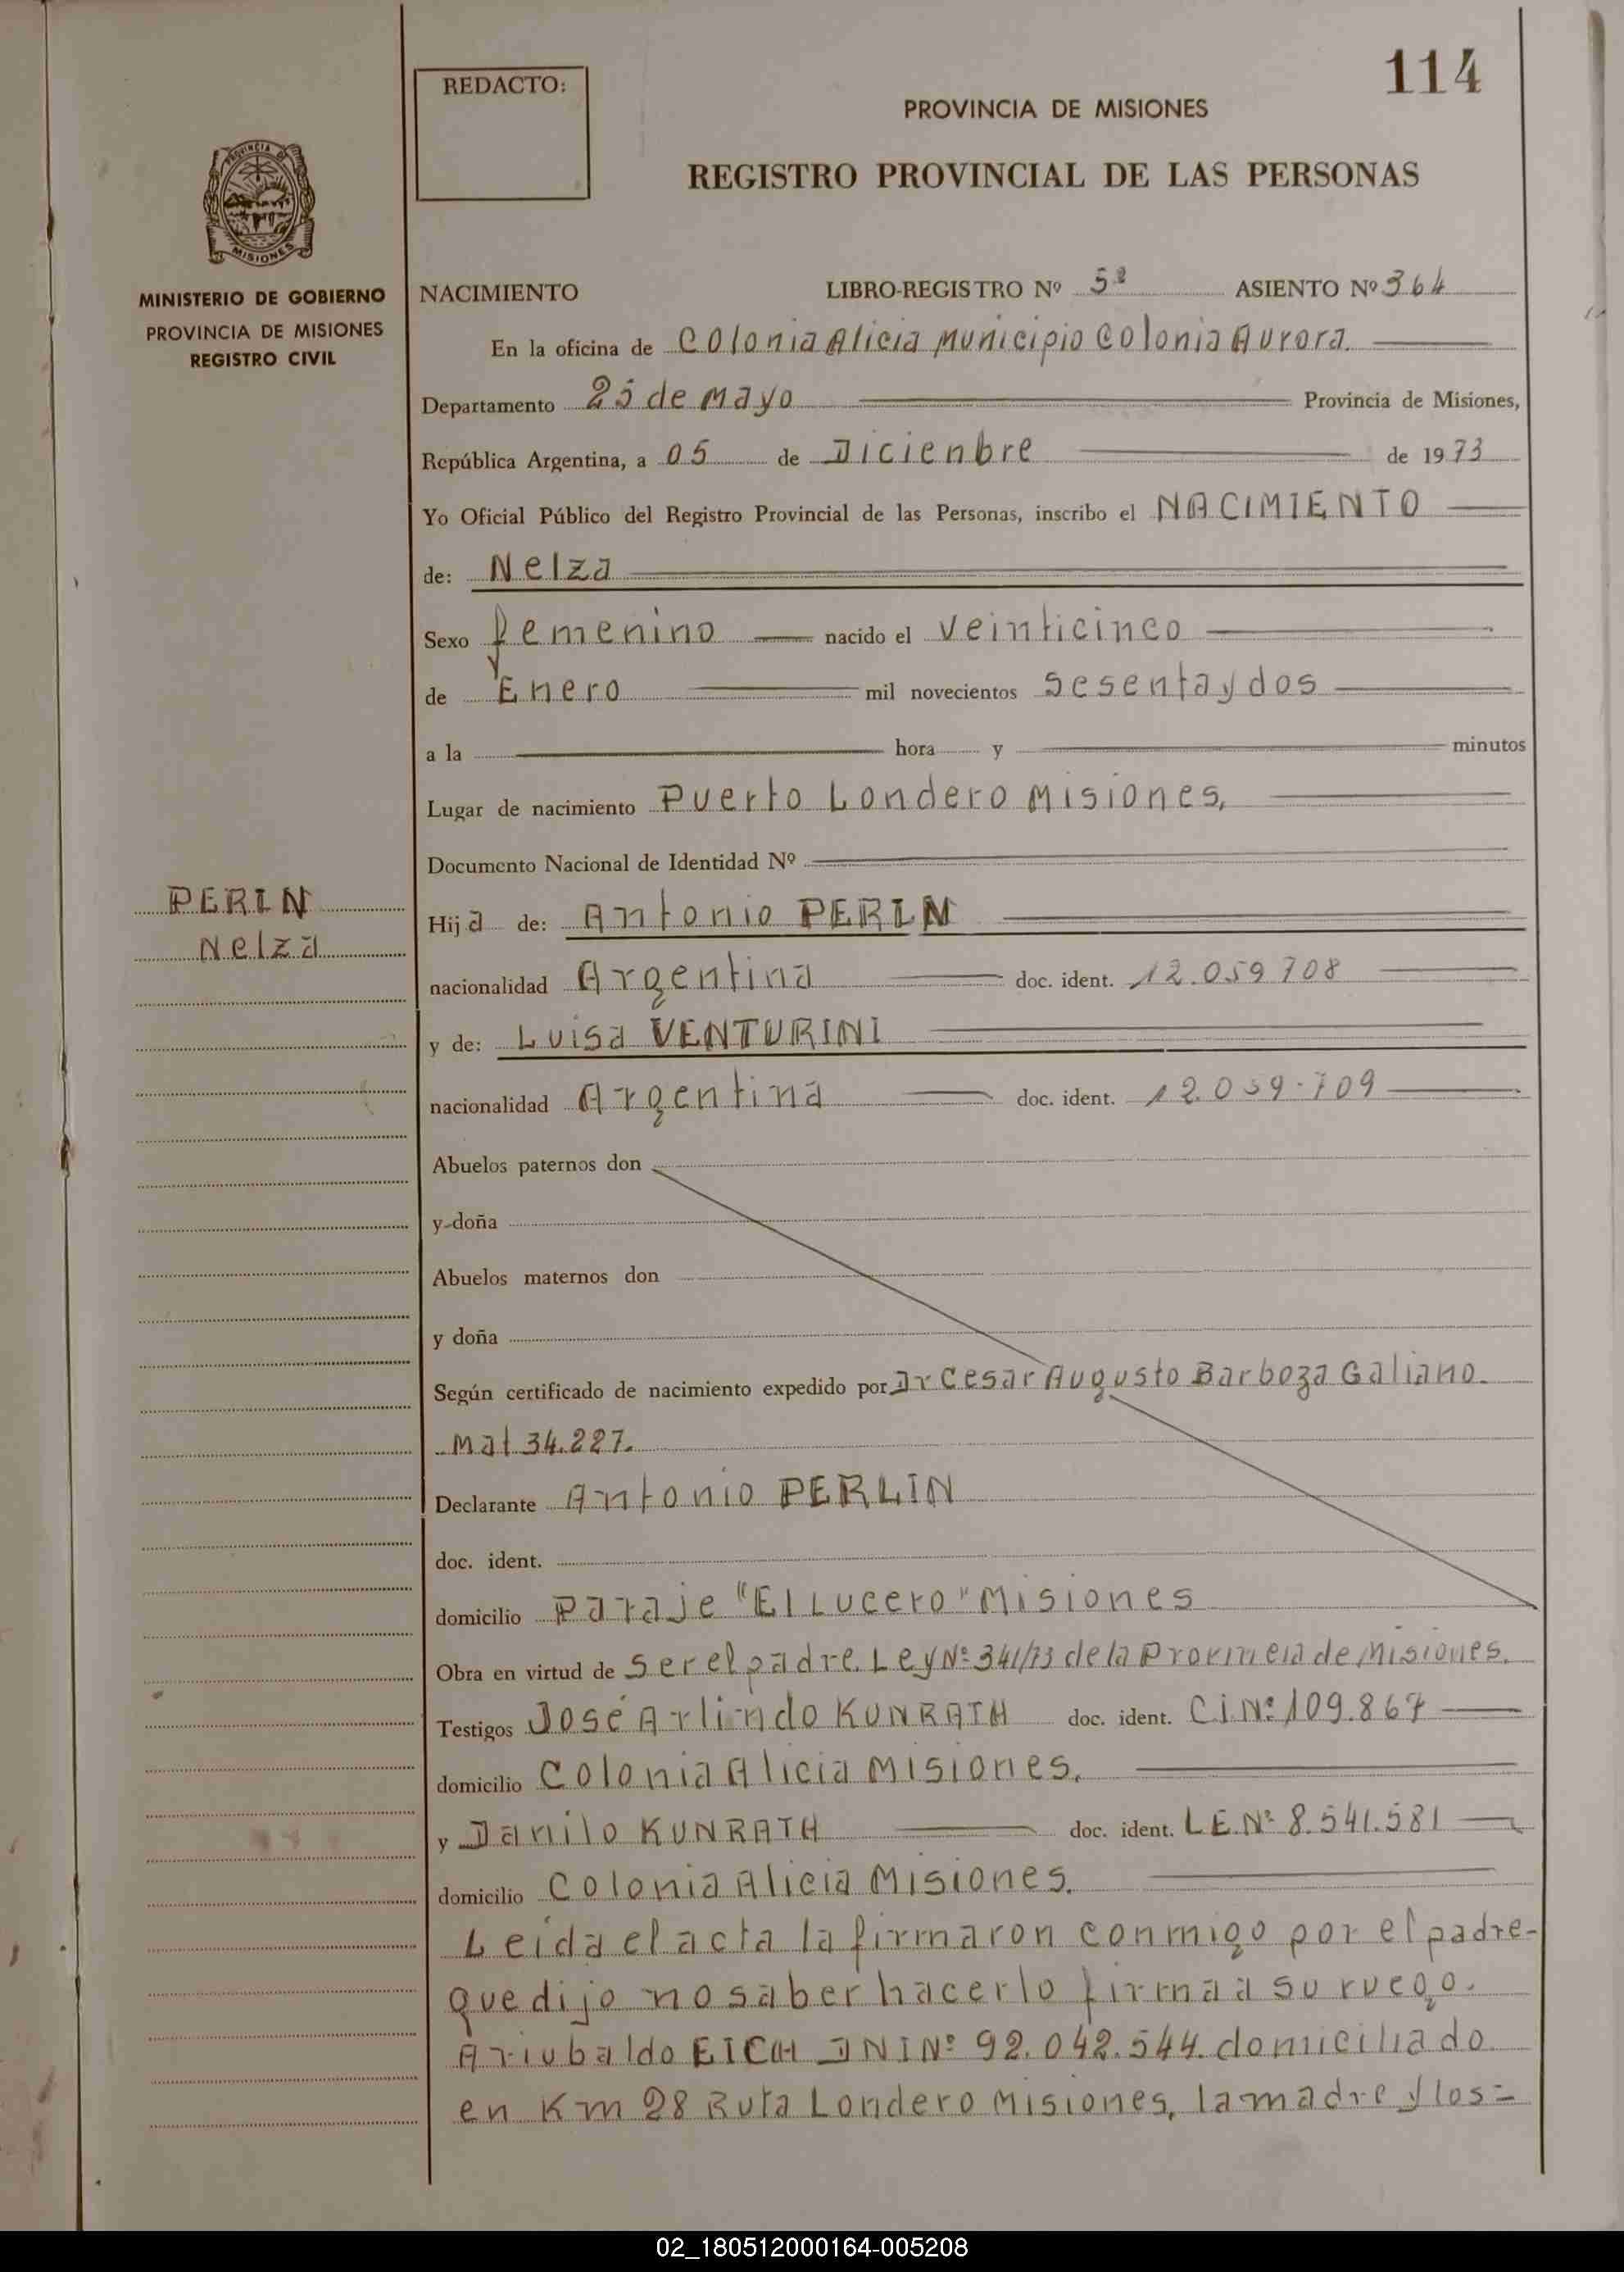 114
REDACTO:
PROVINCIA DE MISIONES
REGISTRO PROVINCIAL DE LAS PERSONAS
PROVINCIA DE
MISIONES
MINISTERIO DE GOBIERNO
PROVINCIA DE MISIONES
REGISTRO CIVIL
NACIMIENTO LIBRO-REGISTRO Nº 5º ASIENTO Nº 364
En la oficina de Colonia Alicia Municipio Colonia Aurora.
Departamento 25 de Mayo Provincia de Misiones,
República Argentina, a 05 de Dicienbre de 1973
Yo Oficial Público del Registro Provincial de las Personas, inscribo el NACIMIENTO
de: Nelza
Sexo femenino nacido el veinticinco
de Enero mil novecientos sesenta y dos
a la hora y minutos
Lugar de nacimiento Puerto Londero Misiones,
Documento Nacional de Identidad Nº
PERIN
Nelza
Hija de: Antonio PERIN
nacionalidad Argentina doc. ident. 12.059708
y de: Luisa VENTURINI
nacionalidad Argentina doc. ident. 12.059.709
Abuelos paternos don
y doña
Abuelos maternos don
y doña
Según certificado de nacimiento expedido por Dr Cesar Augusto Barboza Galiano.
Mat 34.227.
Declarante Antonio PERLIN
doc. ident.
domicilio Paraje "El Lucero" Misiones
Obra en virtud de ser el padre. Ley Nº 341/73 de la Provincia de Misiones.
Testigos José Arlindo KUNRATH doc. ident. C.I.Nº 109.867
domicilio Colonia Alicia Misiones.
y Danilo KUNRATH doc. ident. L.E.Nº 8.541.581
domicilio Colonia Alicia Misiones.
Leída el acta la firmaron conmigo por el padre-
que dijo no saber hacerlo firma a su ruego.
Ariubaldo EICH DNI Nº 92.042.544. domiciliado
en Km 28 Ruta Londero Misiones, la madre y los=
02_180512000164-005208